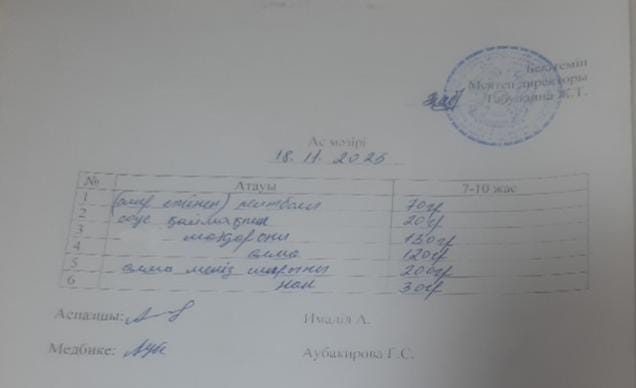 Бекітемін
Мектеп директоры
Ж.Т.
Ас мәзірі
18. 11. 2025.
№ Атауы 7-10 жас
1 (сиыр етінен) митболы 70гр
2 соус қаймақпен 20гр
3 макарони 150гр
4 алма 120гр
5 алма мейіз шырыны 200гр
6 нан 30гр
Аспазшы: Ималія А.
Медбике: Аубакирова Г.С.